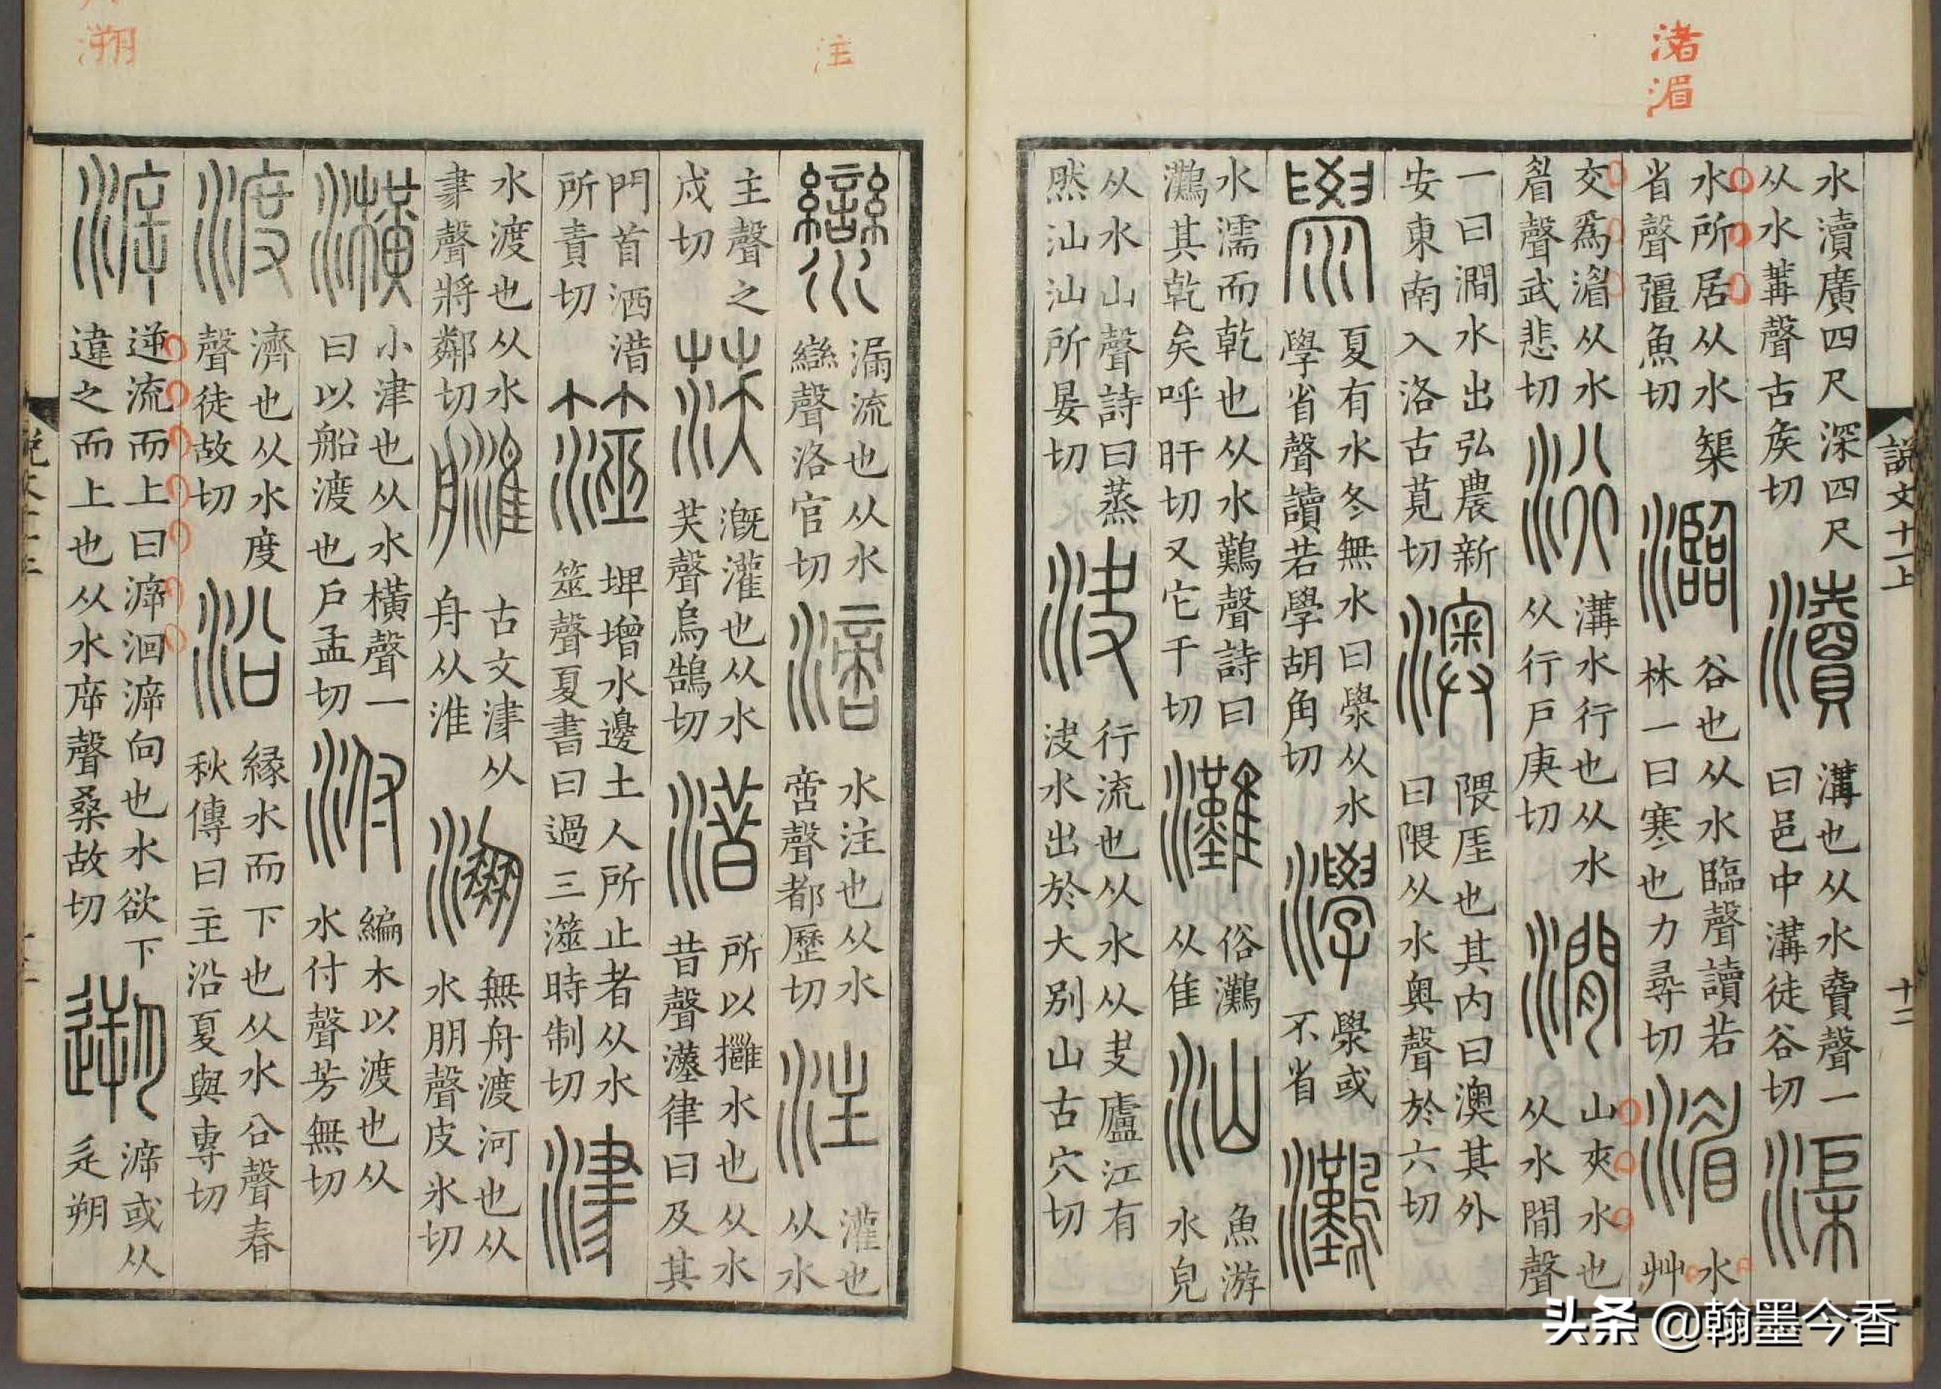 渚
湄
説文十一上
十二
水瀆廣四尺深四尺
从水冓聲古矦切
瀆
溝也从水𧶠聲一
曰邑中溝徒谷切
渠
水
所居从水榘
省聲彊魚切
瀶
谷也从水臨聲讀若
林一曰寒也力尋切
湄
水
艸
交爲湄从水
眉聲武悲切
洐
溝水行也从水
从行戶庚切
澗
山夾水也
从水閒聲
一曰澗水出弘農新
安東南入洛古莧切
澳
隈厓也其内曰澳其外
曰隈从水奧聲於六切
泶
夏有水冬無水曰泶从水
學省聲讀若學胡角切
澩
泶或
不省
灘
水濡而乾也从水鸂聲詩曰
灘其乾矣呼旰切又它干切
灘
俗灘
从隹
汕
魚游
水皃
从水山聲詩曰蒸
然汕汕所晏切
決
行流也从水从夬廬江有
決水出於大別山古穴切
注
灓
漏流也从水
䜌聲洛官切
滴
水注也从水
啻聲都歷切
注
灌也
从水
主聲之
戍切
𣵽
溉灌也从水
芺聲烏鵠切
浩
所以攤水也从水
昔聲漢律曰及其
門首洒浩
所責切
澨
埤增水邊土人所止者从水
筮聲夏書曰過三澨時制切
津
水渡也从水
𦘔聲將鄰切
𦪈
古文津从
舟从淮
淜
無舟渡河也从
水朋聲皮冰切
橫
小津也从水橫聲一
曰以船渡也戶孟切
泭
編木以渡也从
水付聲芳無切
渡
濟也从水度
聲徒故切
沿
緣水而下也从水㕣聲春
秋傳曰王沿夏與專切
㴑
逆流而上曰㴑洄㴑向也水欲下
違之而上也从水㡿聲桑故切
遡
㴑或从
辵朔
溯
头条 @翰墨今香